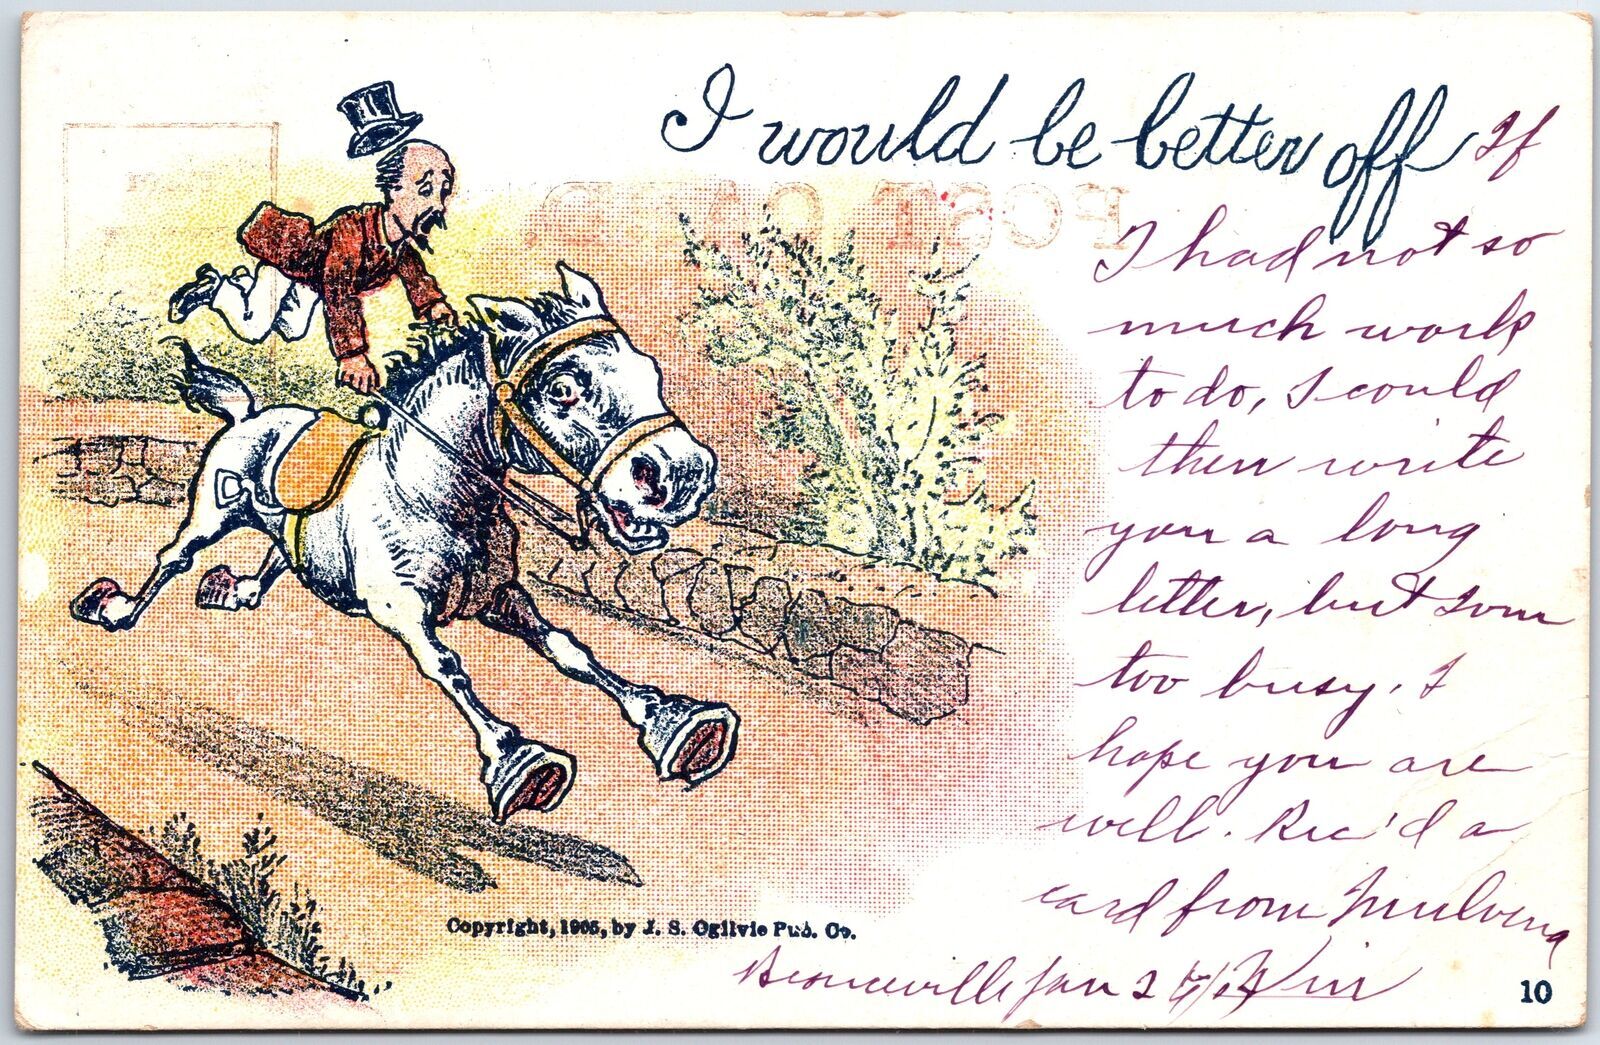 I would be better off If
POST CARD
I had not so
much work
to do, I could
then write
you a long
letter, but I am
too busy. I
hope you are
well. Rec'd a
card from Mulvena
Copyright, 1905, by J. S. Ogilvie Pub. Co.
Jan 2
10